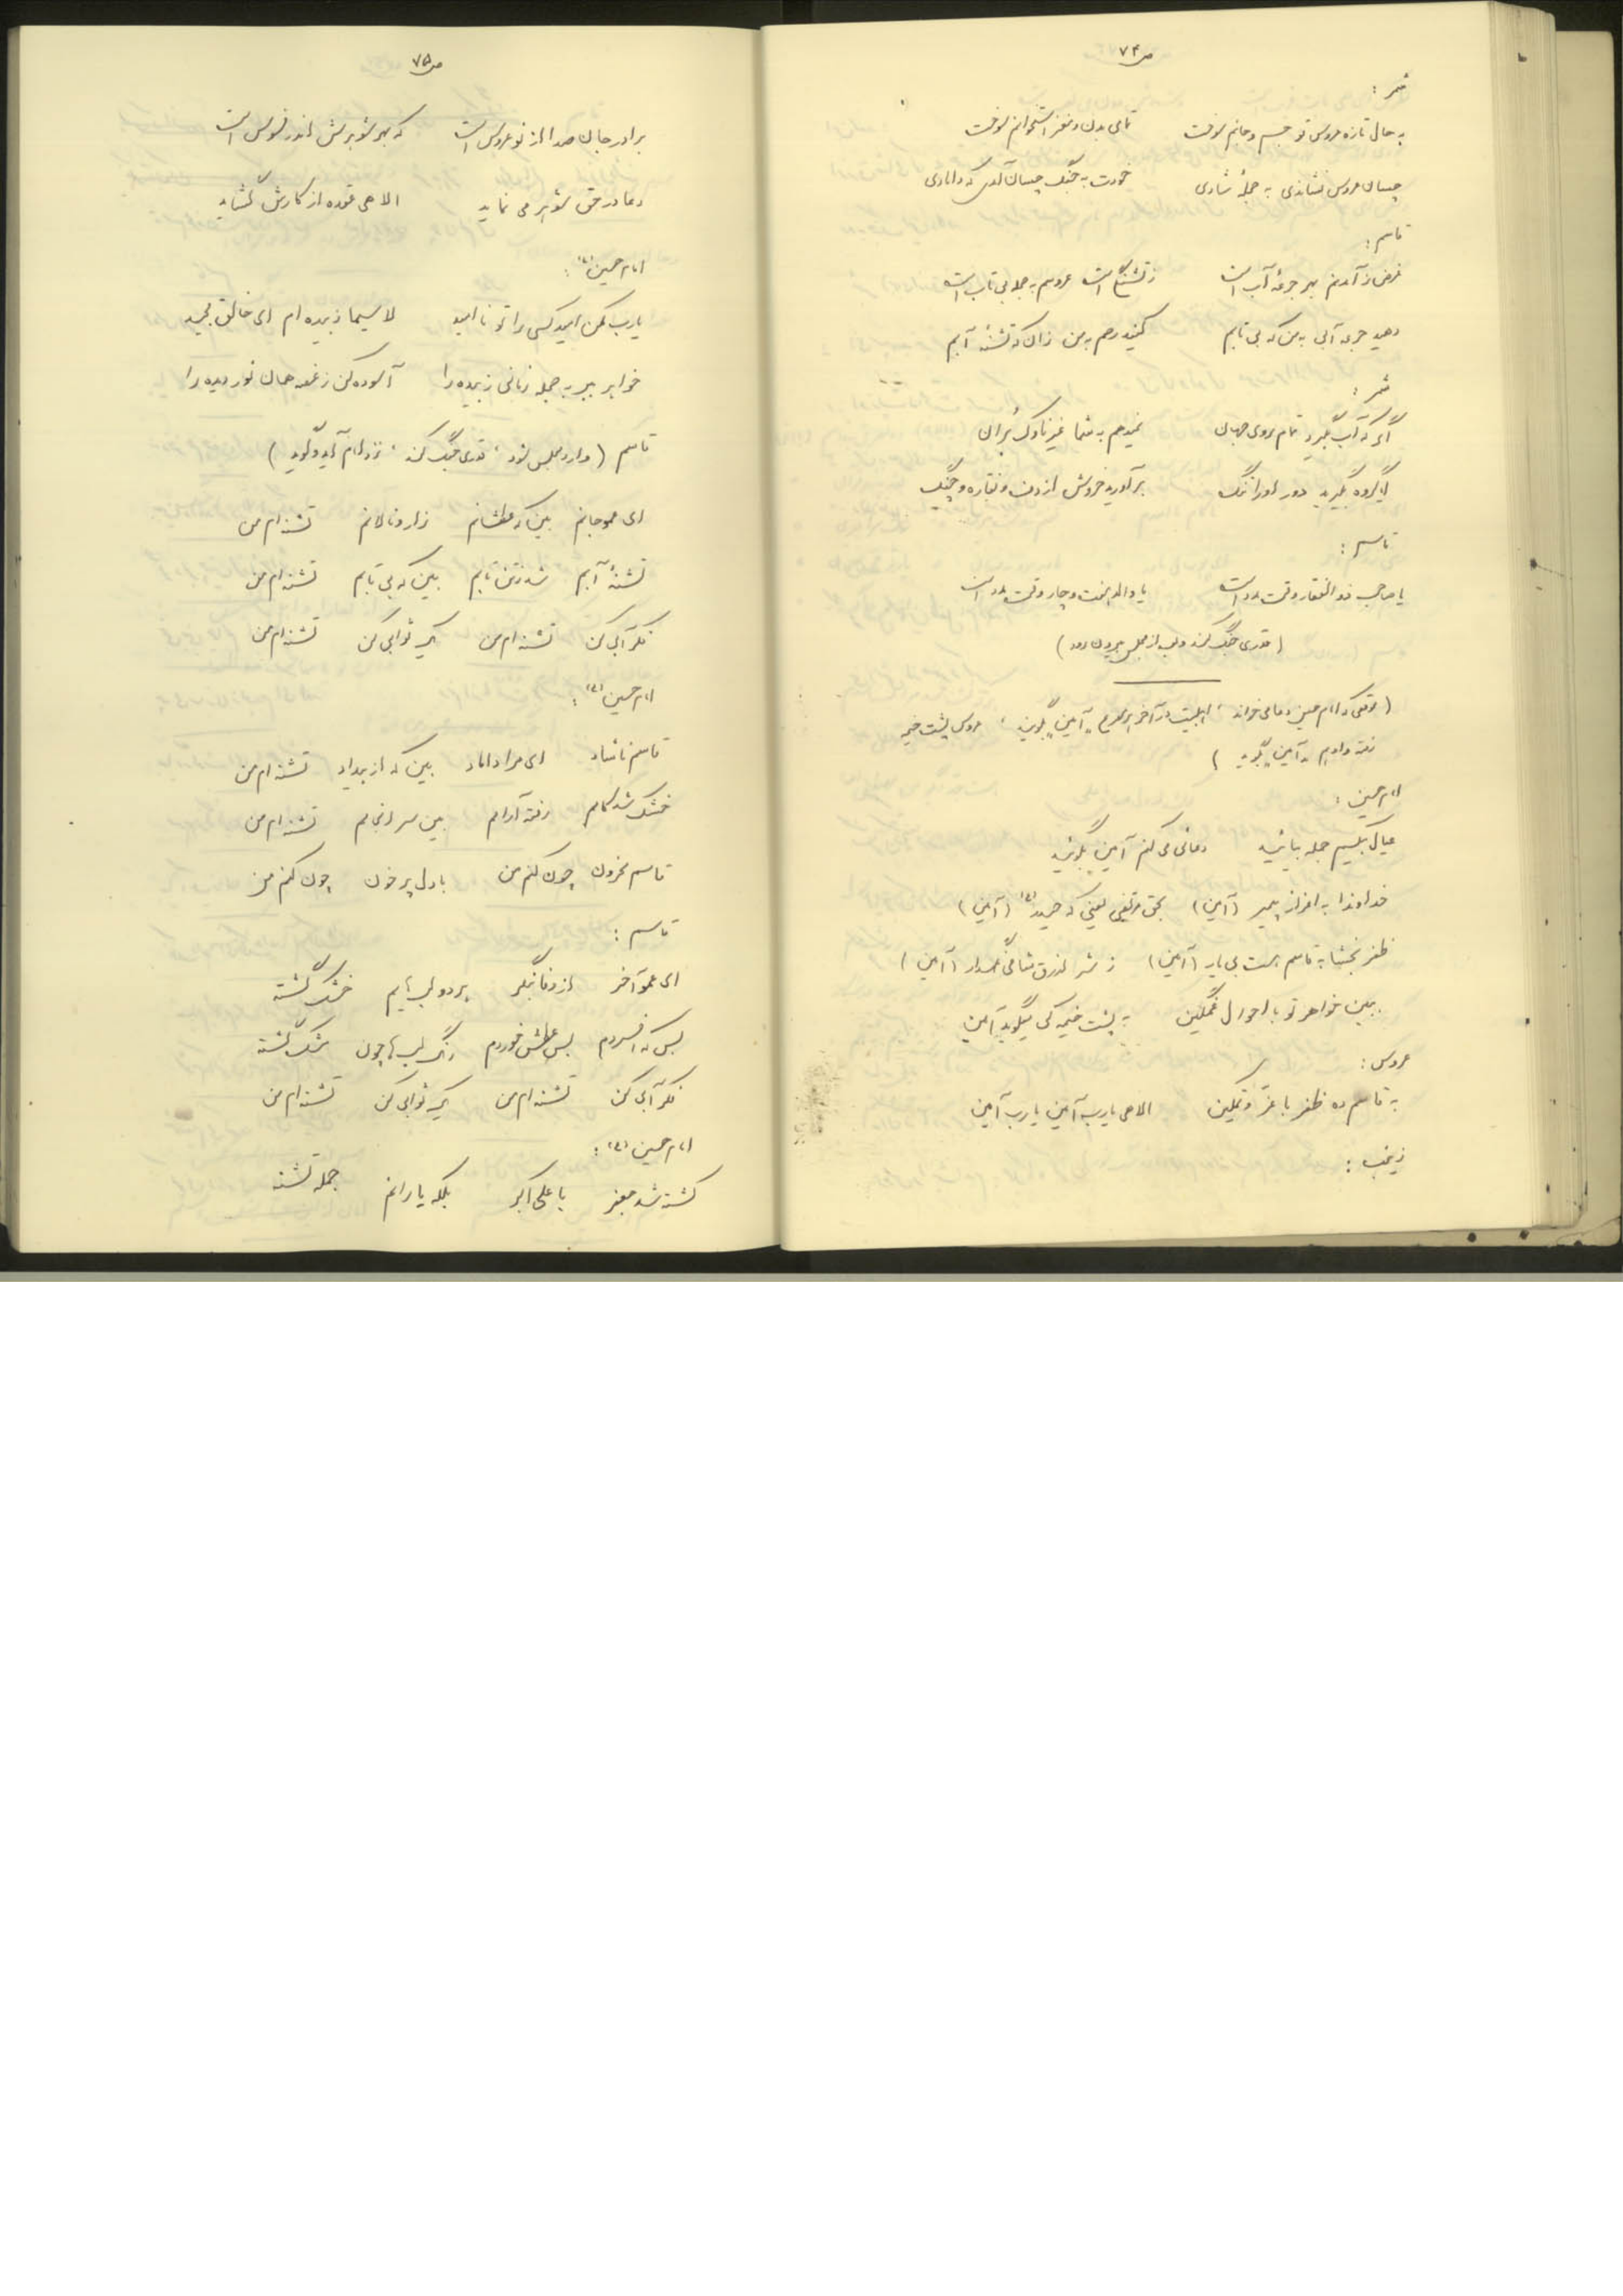 ص ۷۴
شمر :
به حال تازه عروس تو جسم و جانم سوخت تمامی بدن و مغز استخوانم سوخت
چسان عروس نشاندی به حجلهٔ شادی خودت به جنگ چسان آمدی که دامادی
قاسم :
غرض ز آمدنم بهر جرعهٔ آب است ز تشنگی است عروسم به حجله بی‌تاب است
دهید جرعه آبی به من که بی تابم کنید رحم به من زان که تشنهٔ آبم
شمر :
اگر که آب بگیرد تمام روی جهان نمیدهم به شما غیر ناوک بُران
گروه بگیرید دور او را تنگ برآورید خروش از دف و نقاره و چنگ
قاسم :
یا صاحب ذوالفقار وقت مدد است یا والد هشت و چار وقت مدد است
(قدری جنگ کند و بعد از مجلس بیرون رود)
(موقعی که امام حسین دعا می‌خواند ، اهلبیت در آخر هر مصرع «آمین» بگویند ، عروس پشت خیمه
رفته و او هم «آمین» بگوید)
امام حسین :
عیال بیکسیم جمله بیائید دعائی می کنم آمین بگوئید
خداوندا به اعزاز پیمبر (آمین) بحق مرتضی یعنی که حیدر (ع) (آمین)
ظفر بخشا به قاسم هست بی یار (آمین) ز شر ازرق شامی غدار (آمین)
ببین خواهر تو با احوال غمگین به پشت خیمه کی میگوید آمین
عروس :
به قاسم ده ظفر با عزّ و تمکین الاهی یارب آمین یارب آمین
زینب :
ص ۷۵
برادر جان صدا از نوعروس است که بهر شوهرش اندر فسوس است
دعا در حق شوهر می نماید الاهی عقده از کارش گشاید
امام حسین (ع) :
یارب مکن امید کسی را تو ناامید لاسیما زبیده ام ای خالق مجید
خواهر ببر به حجله زنانی زبیده را آسوده کن ز غصه همان نور دیده را
قاسم (وارد مجلس شود ، قدری جنگ کند ، نزد امام آید و گوید)
ای عمو جانم بین که عطشانم زار و نالانم تشنه ام من
تشنهٔ آبم شد ز تن تابم بین که بی تابم تشنه ام من
فکر آبی کن تشنه ام من یک ثوابی کن تشنه ام من
امام حسین (ع) :
قاسم ناشاد ای مرا داماد بین که از بیداد تشنه ام من
خشک شد کامم رفته آرامم بین سرانجامم تشنه ام من
قاسم محزون چون کنم من با دل پر خون چون کنم من
قاسم :
ای عمو آخر از وفا بنگر هر دو لب‌هایم خشک گشته
بس که افسردم بس عطش خوردم رنگ لب‌ها چون مشک گشته
فکر آبی کن تشنه ام من یک ثوابی کن تشنه ام من
امام حسین (ع) :
کشته شد جعفر با علی اکبر بلکه یارانم جمله تشنه